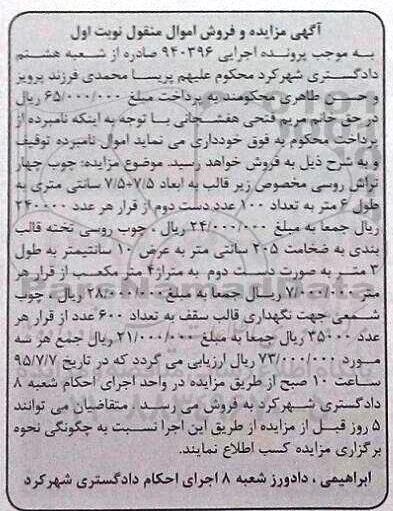 آگهی مزایده و فروش اموال منقول نوبت اول
به موجب پرونده اجرایی ۹۴۰۳۹۶ صادره از شعبه هشتم
دادگستری شهرکرد محکوم علیهم پریسا محمدی فرزند پرویز
و حسن طاهری محکومند به پرداخت مبلغ ۶۵/۰۰۰/۰۰۰ ریال
در حق خانم مریم فتحی هفشجانی با توجه به اینکه نامبرده از
پرداخت محکوم به فوق خودداری می نماید اموال نامبرده توقیف
و به شرح ذیل به فروش خواهد رسید. موضوع مزایده: چوب چهار
تراش روسی مخصوص زیر قالب به ابعاد ۷/۵*۷/۵ سانتی متری به
طول ۶ متر به تعداد ۱۰۰ عدد دست دوم از قرار هر عدد ۲۴۰۰۰۰
ریال جمعا به مبلغ ۲۴/۰۰۰/۰۰۰ ریال ، چوب روسی تخته قالب
بندی به ضخامت ۲۰۵ سانتی متر به عرض ۱۰ سانتیمتر به طول
۳ متر به صورت دست دوم به متراژ ۴ متر مکعب از قرار هر
متر ۷/۰۰۰/۰۰۰ ریال جمعا به مبلغ ۲۸/۰۰۰/۰۰۰ ریال ، چوب
شمعی جهت نگهداری قالب سقف به تعداد ۶۰۰ عدد از قرار هر
عدد ۳۵۰۰۰ ریال جمعا به مبلغ ۲۱/۰۰۰/۰۰۰ ریال جمع هر سه
مورد ۷۳/۰۰۰/۰۰۰ ریال ارزیابی می گردد که در تاریخ ۹۵/۷/۷
ساعت ۱۰ صبح از طریق مزایده در واحد اجرای احکام شعبه ۸
دادگستری شهرکرد به فروش می رسد . متقاضیان می توانند
۵ روز قبل از مزایده از طریق این اجرا نسبت به چگونگی نحوه
برگزاری مزایده کسب اطلاع نمایند.
ابراهیمی ، دادورز شعبه ۸ اجرای احکام دادگستری شهرکرد
ParsNamadData